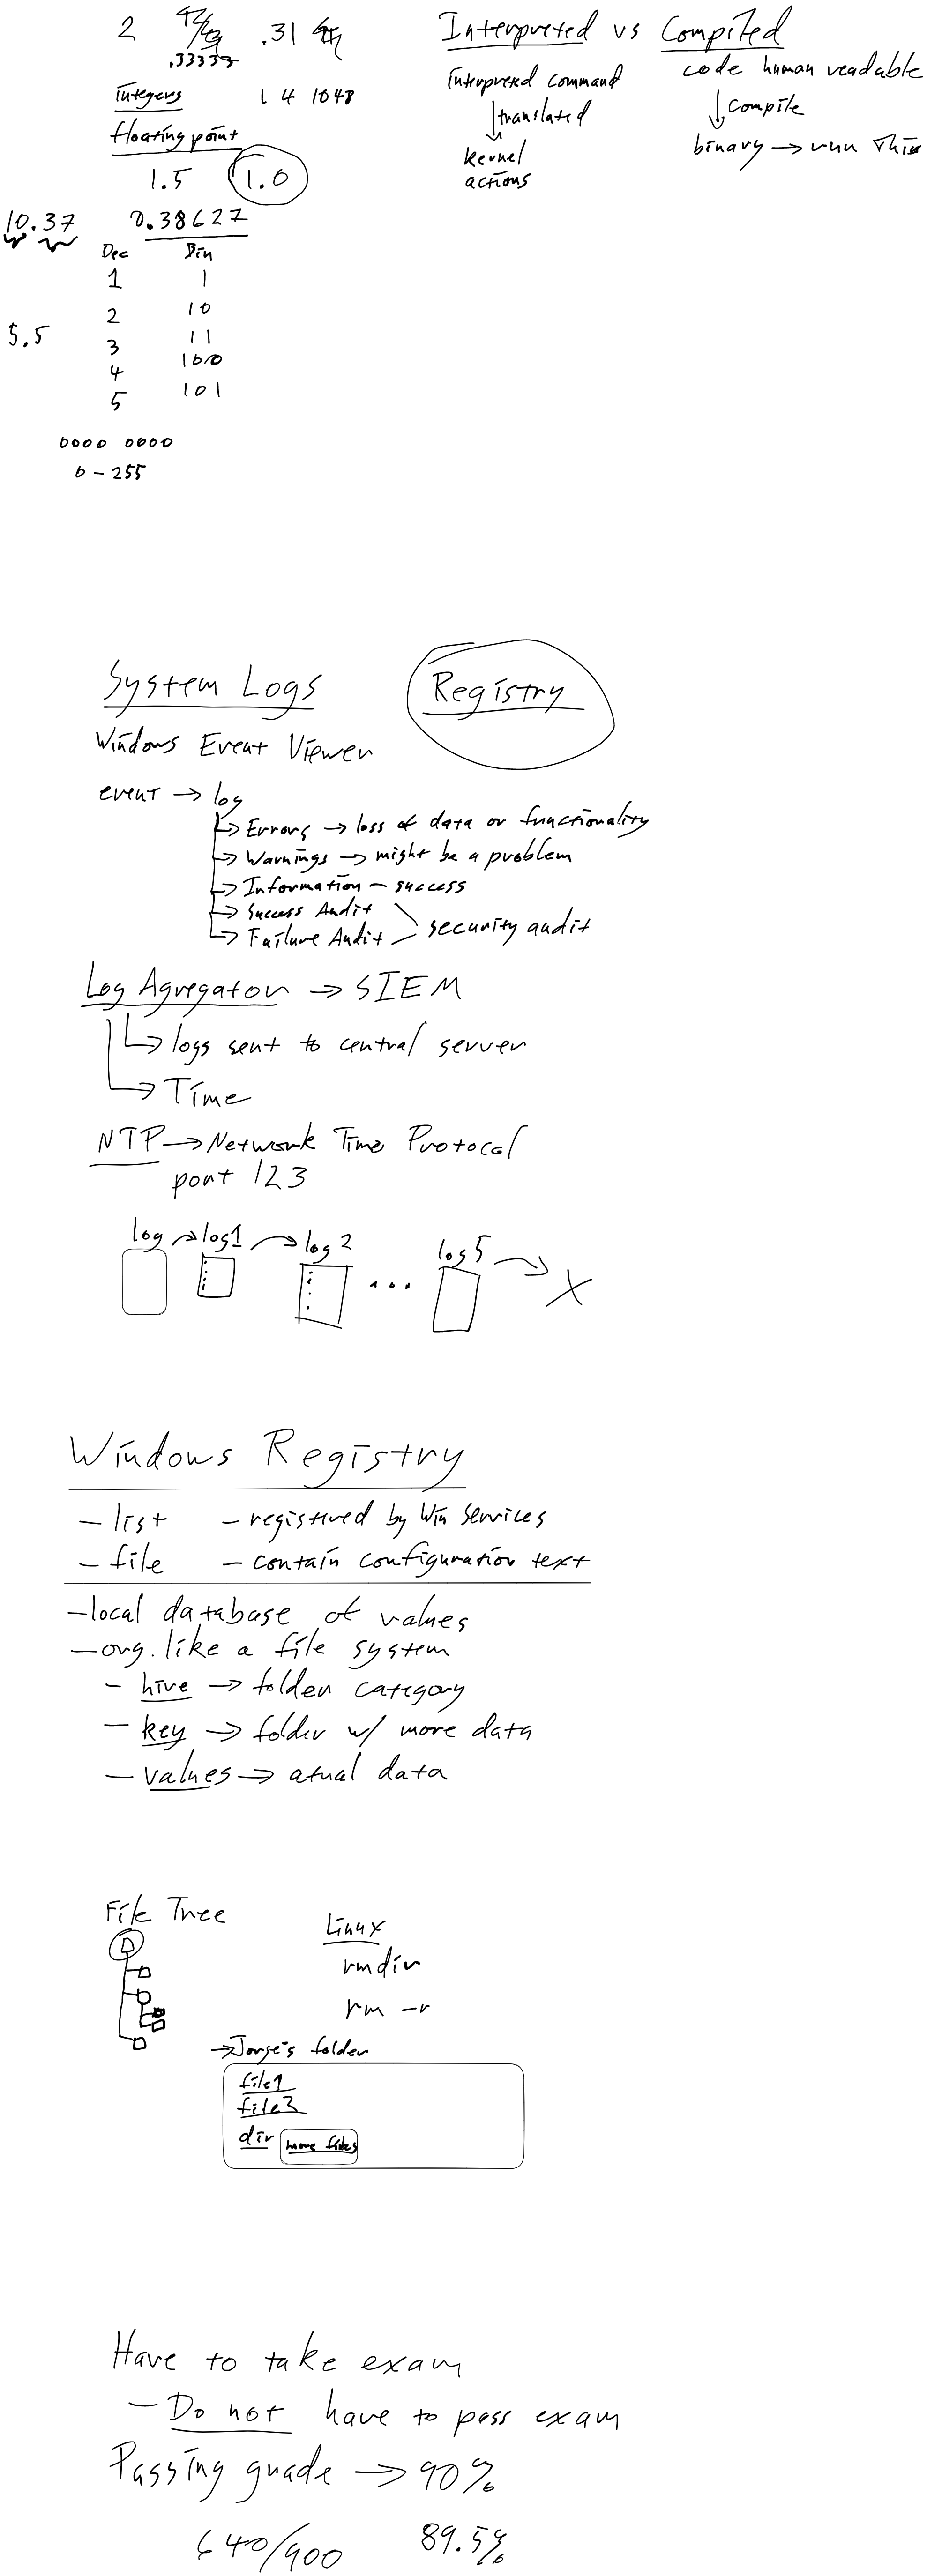 2 .31
.33333
integers 1 4 1048
floating point
1.5 1.0
10.37 0.38627
Dec Bin
1 1
2 10
3 11
5.5
4 100
5 101
0000 0000
0 - 255
Interpreted vs Compiled
interpreted command
↓ translated
kernel
actions
code human readable
↓ compile
binary → run This
System Logs
Registry
Windows Event Viewer
event → log
↳ Errors → loss of data or functionality
↳ Warnings → might be a problem
↳ Information - success
↳ Success Audit
↳ Failure Audit
security audit
Log Agregator → SIEM
↳ logs sent to central server
↳ Time
NTP → Network Time Protocal
port 123
log → log1 → log2 ... log5 → X
Windows Registry
- list - registered by Win Services
- file - contain configuration text
- local database of values
- org. like a file system
- hive → folder category
- key → folder w/ more data
- values → atual data
File Tree
Linux
rmdir
rm -r
→ Jorge's folder
file1
file2
dir more files
Have to take exam
- Do not have to pass exam
Passing grade → 90%
640/900 89.5%